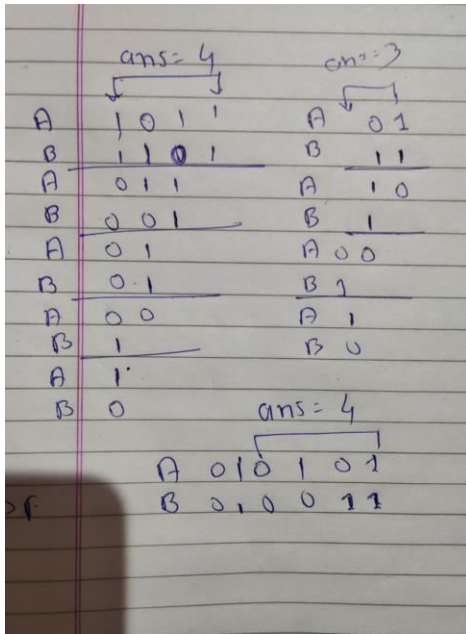 ans= 4
A 1 0 1 1
B 1 1 0 1
A 0 1 1
B 0 0 1
A 0 1
B 0 1
A 0 0
B 1
A 1
B 0
ans=3
A 0 1
B 1 1
A 1 0
B 1
A 0 0
B 1
A 1
B 0
ans= 4
A 0 1 0 1 0 1
B 0 1 0 0 1 1